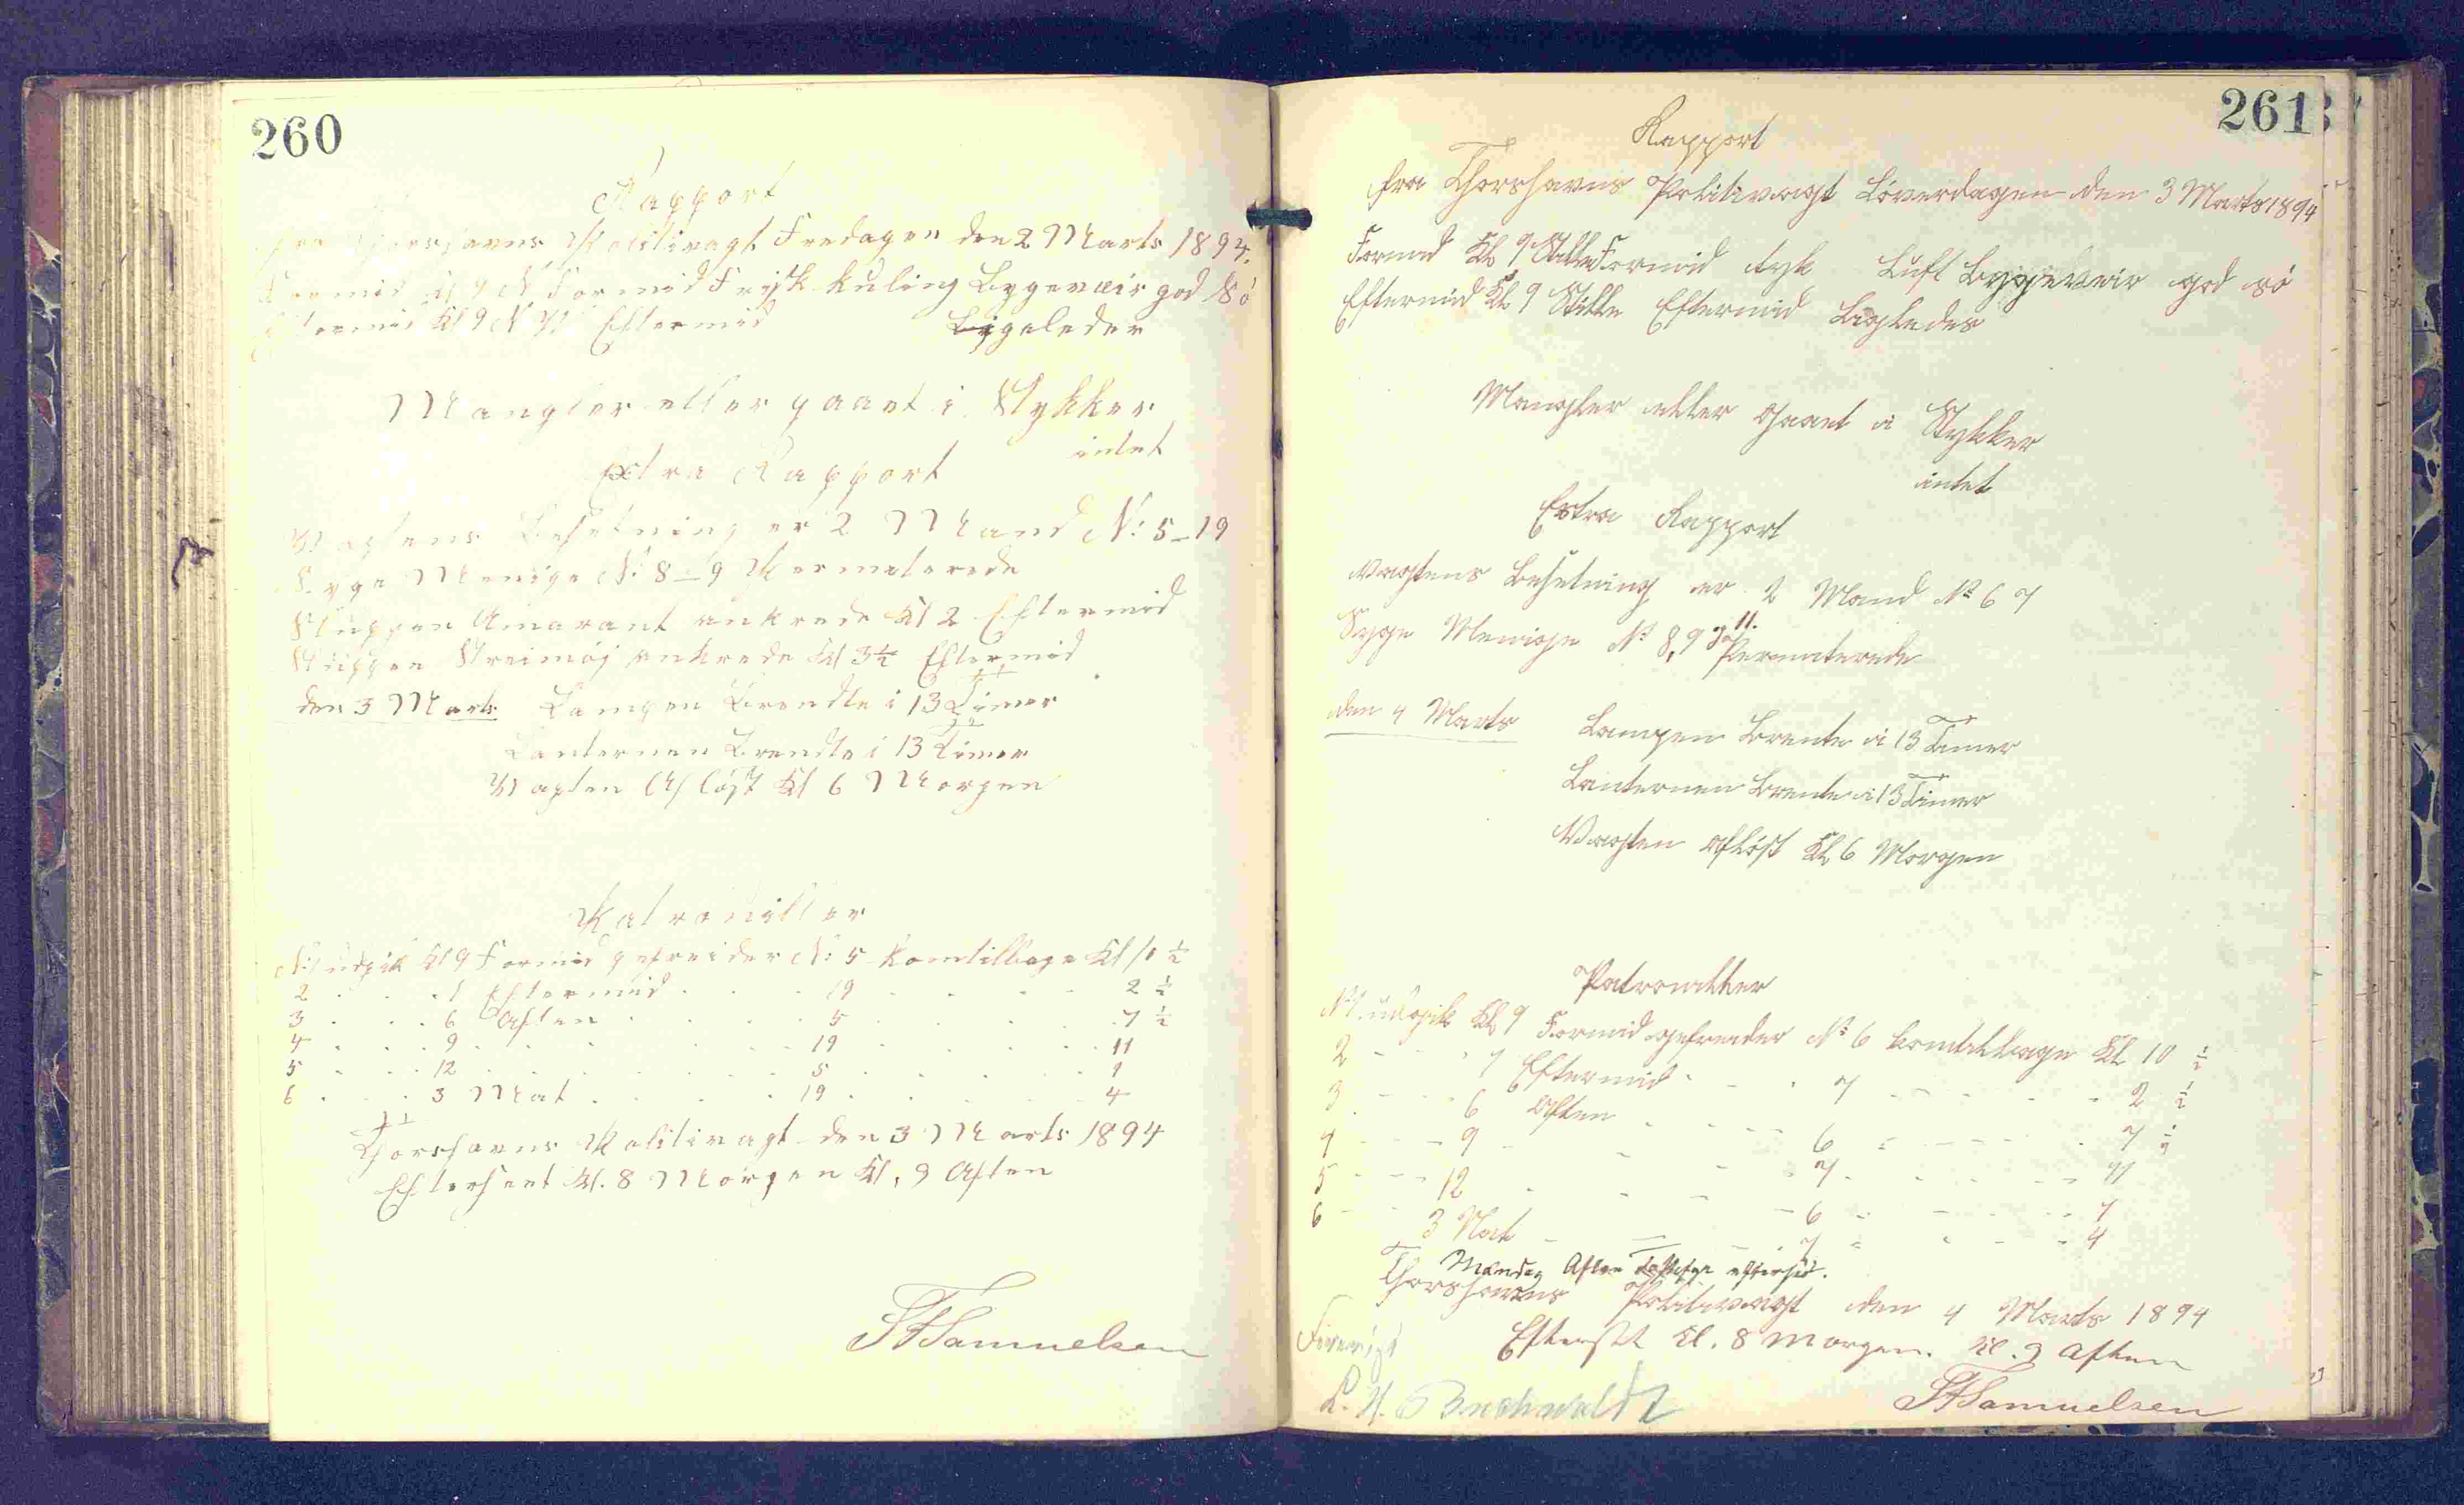 260
Rapport
fra Thorshavns Politivagt Fredagen den 2 Marts 1894.
Formid Kl 9 N Formid Frisk Kuling Bygeveir god Sö
Eftermid Kl 9 N V Eftermid Ligeledes
Mangler eller gaaet i Stykker
intet
Extra Rapport
Vagtens Besetning er 2 Mand N: 5-19
Syge Menige N: 8-9 Permiterede
Sluppen Amarant ankrede Kl 2 Eftermid
Sluppen Streimöj ankrede Kl 3½ Eftermid
den 3 Marts Lampen Brendte i 13 Timer
Lanternen Brendte i 13 Timer
Vagten Aflöst Kl 6 Morgen
Patrouiller
N: 1 udgik Kl 9 Formid gefreider N: 5 Kom tilbage Kl 10 ½
2 . . . 1 Eftermid . . . 19 . . . . 2 ½
3 . . . 6 Aften . . . . 5 . . . . 7 ½
4 . . . 9 . . . . . 19 . . . . 11
5 . . . 12 . . . . . 5 . . . . 1
6 . . . 3 Nat . . . . 19 . . . . 4
Thorshavns Politivagt den 3 Marts 1894
Efterseet Kl. 8 Morgen Kl. 9 Aften
Samuelsen
261
Rapport
fra Thorshavns Politivagt Löverdagen den 3 Marts 1894
Formid Kl 9 Stille Formid tyk Luft Bygeveir god sö
Eftermid Kl 9 Stille Eftermid Ligeledes
Mangler eller Gaaet i Stykker
intet
Extra Rapport
Vagtens Besetning er 2 Mand N: 6 7
Syge Menige N: 8, 9 og 11. Permiterede
den 4 Marts Lampen Brente i 13 Timer
Lanternen Brente i 13 Timer
Vagten aflöst Kl 6 Morgen
Patrouiller
N: 1 udgik Kl 9 Formid gefreider N: 6 kom tilbage Kl 10 ½
2 - - - 1 Eftermid - - - 7 - - - - 2 ½
3 - - - 6 Aften - - - 6 - - - - 7 ½
4 - - - 9 - - - - 7 - - - - 11
5 - - - 12 - - - - 6 - - - - 1
6 - - - 3 Nat - - - 7 - - - - 4
Mandag Aften
Thorshavns Politivagt den 4 Marts 1894
Efterset Kl. 8 Morgen. Kl. 9 Aften
Samuelsen